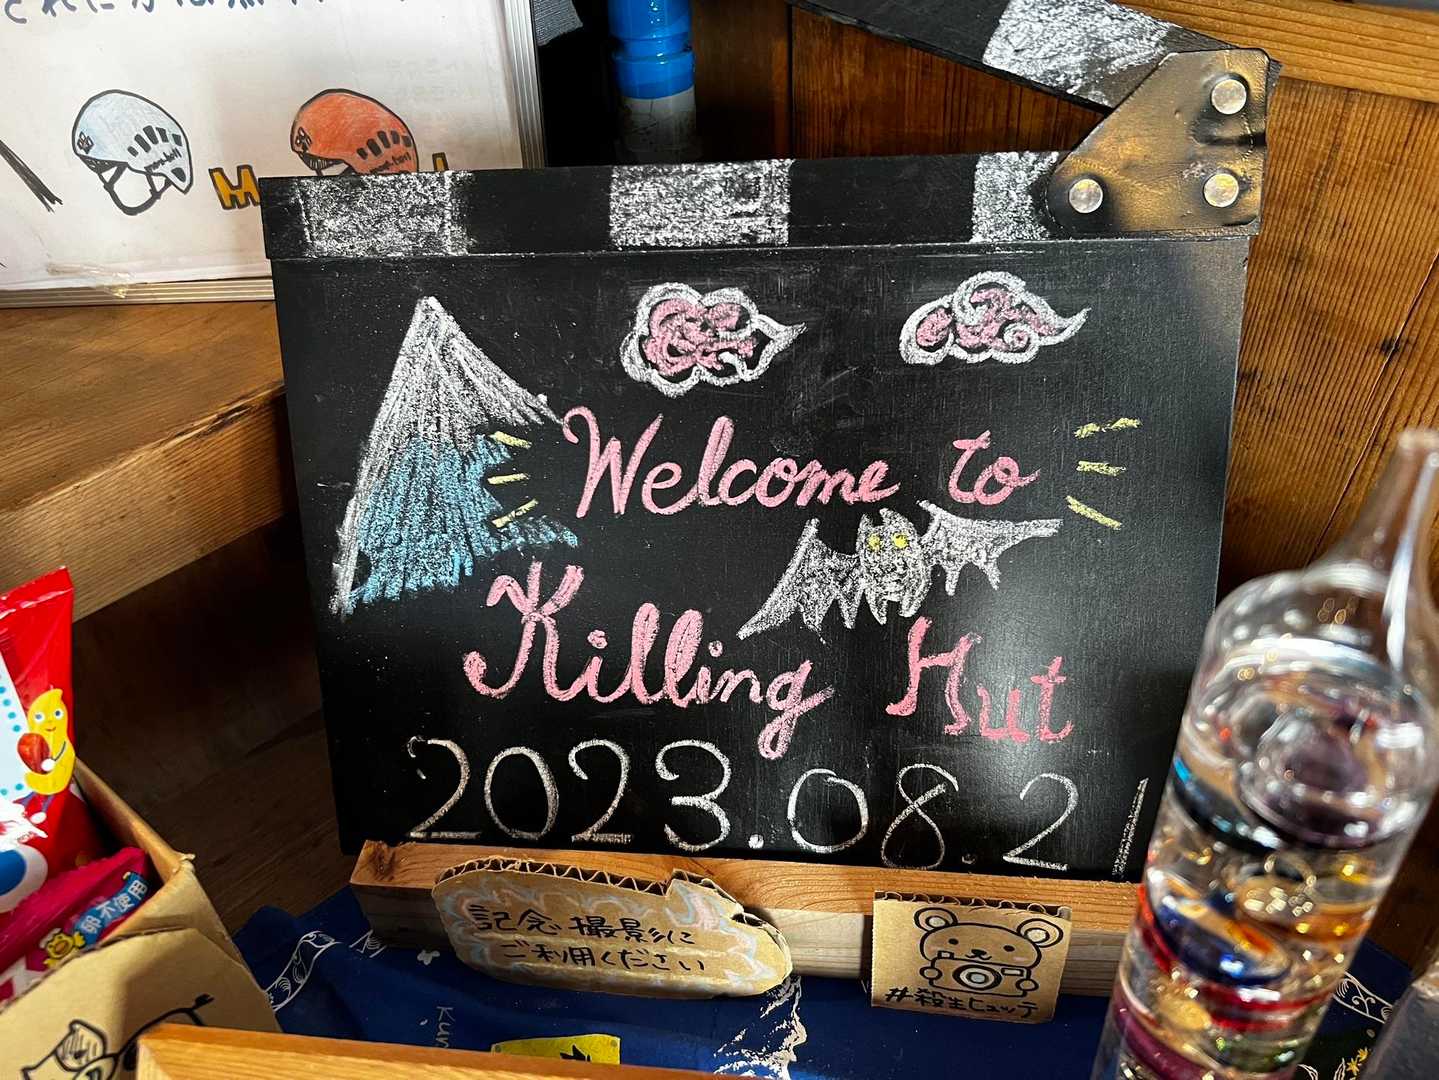 Welcome to
Killing Hut
2023.08.21
記念撮影に
ご利用ください
#殺生ヒュッテ
卵不使用